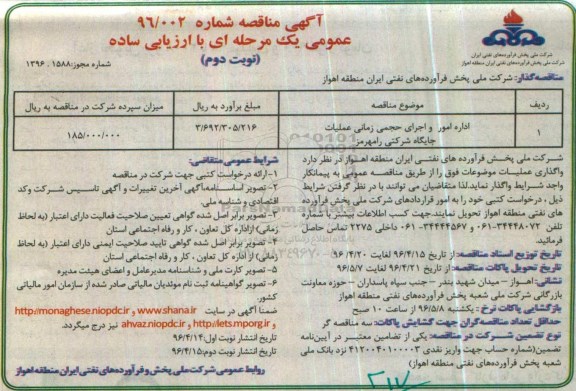 آگهی مناقصه شماره ۹۶/۰۰۲
عمومی یک مرحله ای با ارزیابی ساده
(نوبت دوم)
شرکت ملی پخش فرآورده‌های نفتی ایران
شرکت ملی پخش فرآورده‌های نفتی ایران منطقه اهواز
شماره مجوز: ۱۳۹۶.۱۵۸۸
مناقصه‌گذار: شرکت ملی پخش فرآورده‌های نفتی ایران منطقه اهواز
ردیف موضوع مناقصه مبلغ برآورد به ریال میزان سپرده شرکت در مناقصه به ریال
۱ اداره امور و اجرای حجمی زمانی عملیات جایگاه شرکتی رامهرمز ۳/۶۹۲/۳۰۵/۲۱۶ ۱۸۵/۰۰۰/۰۰۰
شرکت ملی پخش فرآورده های نفتی ایران منطقه اهواز در نظر دارد
واگذاری عملیات موضوعات فوق را از طریق مناقصه عمومی به پیمانکار
واجد شرایط واگذار نماید.لذا متقاضیان می توانند با در نظر گرفتن شرایط
ذیل ، درخواست کتبی خود را به امور قراردادهای شرکت ملی پخش فرآورده
های نفتی منطقه اهواز تحویل نمایند.جهت کسب اطلاعات بیشتر با شماره
تلفن ۳۴۴۴۸۰۷۲-۰۶۱ و ۳۴۴۴۴۵۶۷-۰۶۱ داخلی ۲۲۷۵ تماس حاصل
فرمائید.
تاریخ توزیع اسناد مناقصه: از تاریخ ۹۶/۴/۱۵ لغایت ۹۶/۴/۲۰
تاریخ تحویل پاکات مناقصه: از تاریخ ۹۶/۴/۲۱ لغایت ۹۶/۵/۷
نشانی: اهـواز - میدان شهید بندر - جنب سپاه پاسداران - حوزه معاونت
بازرگانی شرکت ملی شعبه پخش فرآورده‌های نفتی ایران منطقه اهواز
بازگشایی پاکات نرخ: یکشنبه ۹۶/۵/۸ از ساعت ۱۰ صبح
حداقل تعداد مناقصه‌گران جهت گشایش پاکات: سه مناقصه گر
نوع تضمین شرکت در مناقصه: یکی از تضامین معتبر در آیین‌نامه
تضمین(شماره حساب جهت واریز نقدی ۴۱۲۰۰۴۰۱۰۰۰۳ نزد بانک ملی
شعبه پخش فرآورده‌های نفتی منطقه اهواز)
شرایط عمومی متقاضی:
۱-ارائه درخواست کتبی جهت شرکت در مناقصه
۲- تصویر اساسنامه،آگهی آخرین تغییرات و آگهی تاسیس شرکت وکد
اقتصادی و شناسه ملی.
۳- تصویر برابر اصل شده گواهی تعیین صلاحیت فعالیت دارای اعتبار (به لحاظ
زمانی) ازاداره کل تعاون ، کار و رفاه اجتماعی استان
۴- تصویر برابر اصل شده گواهی تایید صلاحیت ایمنی دارای اعتبار (به لحاظ
زمانی) از اداره کل تعاون ، کار و رفاه اجتماعی استان
۵- تصویر کارت ملی و شناسنامه مدیرعامل و اعضای هیئت مدیره
۶- تصویر گواهینامه ثبت نام مودیان مالیاتی صادر شده از سازمان امور مالیاتی
کشور
ضمنا آگهی در سایت www.shana.ir و http://monaghese.niopdc.ir
و http://iets.mporg.ir و ahvaz.niopdc.ir نیز درج میگردد.
تاریخ انتشار نوبت اول: ۹۶/۴/۱۴
تاریخ انتشار نوبت دوم: ۹۶/۴/۱۵
روابط عمومی شرکت ملی پخش و فرآورده‌های نفتی ایران منطقه اهواز